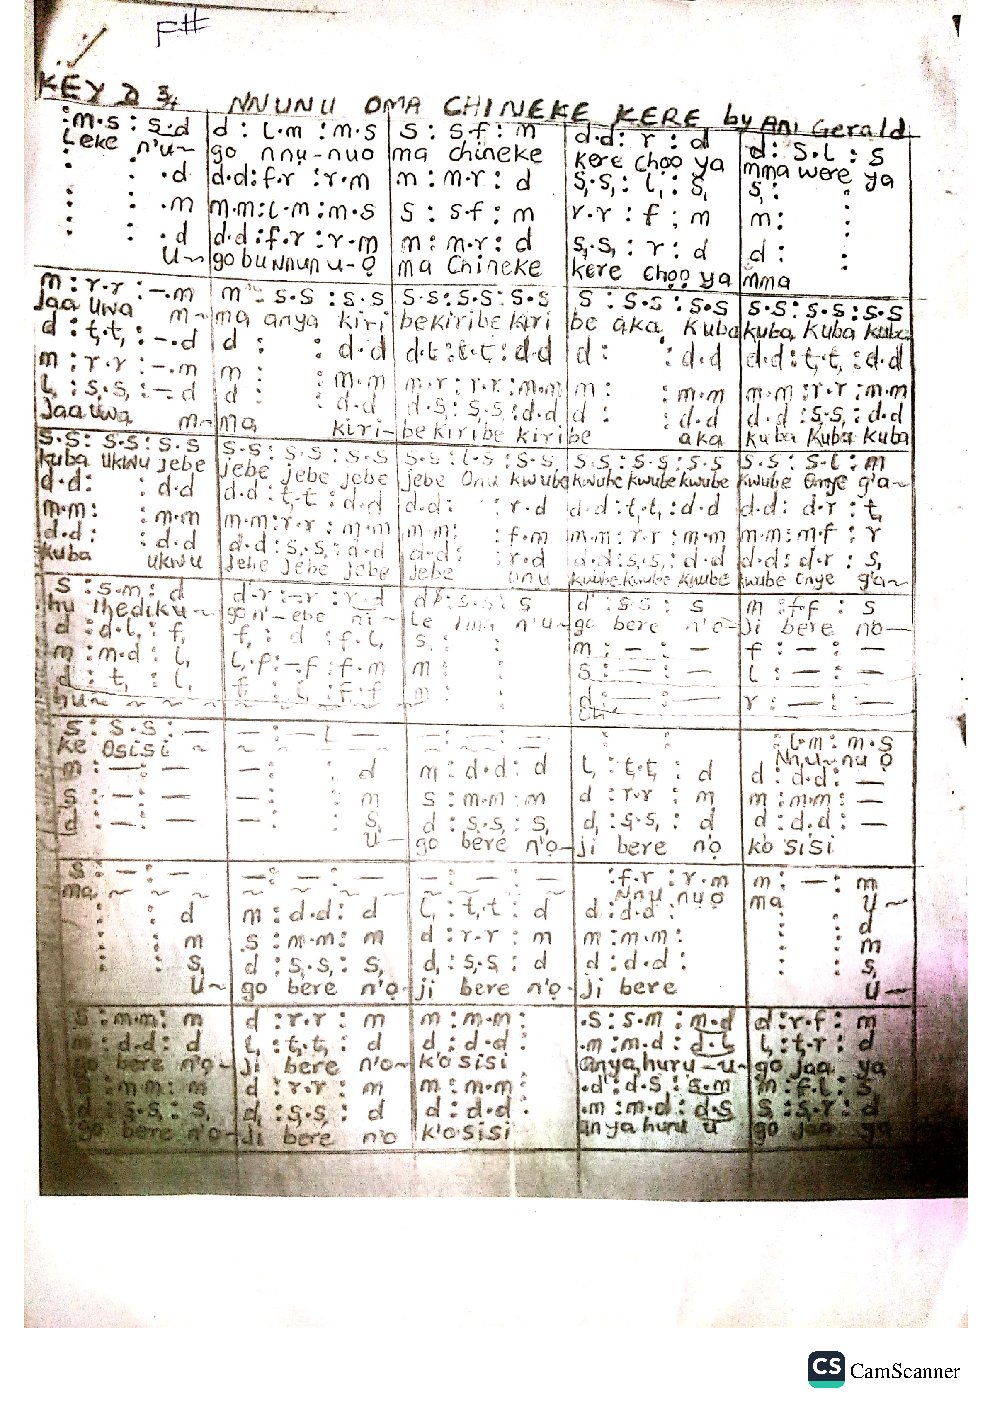 F#
KEY D 3/4 NNUNU OMA CHINEKE KERE by ANI Gerald
:m.s : s.d | d : l.m : m.s | s : s.f : m | d.d : r : d | d : s.l : s
Leke n'u~ | go nnu-nuo | ma chineke | kere choo ya | mma were ya
: : .d | d.d : f.r : r.m | m : m.r : d | s,.s, : l, : s, | s, : :
: : .m | m.m : l.m : m.s | s : s.f : m | r.r : f : m | m : :
: : .d | d.d : f.r : r.m | m : m.r : d | s,.s, : r : d | d : :
u~ | go bu nnunu-ọ | ma Chineke | kere chọọ ya | mma
m : r.r : -.m | m : s.s : s.s | s.s : s.s : s.s | s : s.s : s.s | s.s : s.s : s.s
Jaa uwa m~ | ma anya kiri | be kiribe kiri | be aka kuba | kuba kuba kuba
d : t,.t, : -.d | d : : d.d | d.t : t.t : d.d | d : : d.d | d.d : t,.t, : d.d
m : r.r : -.m | m : : m.m | m.r : r.r : m.m | m : : m.m | m.m : r.r : m.m
l, : s,.s, : -.d | d : : d.d | d.s, : s,.s : d.d | d : : d.d | d.d : s,.s, : d.d
Jaa uwa m~ | ma kiri~ | be kiribe kiri | be aka | kuba kuba kuba
s.s : s.s : s.s | s.s : s.s : s.s | s.s : l.s : s.s | s.s : s.s : s.s | s.s : s.l : m
kuba ukwu jebe | jebe jebe jebe | jebe onu kwube | kwube kwube kwube | kwube onye g'a~
d.d : : d.d | d.d : t,.t : d.d | d.d : : r.d | d.d : t,.t, : d.d | d.d : d.r : t,
m.m : : m.m | m.m : r.r : m.m | m.m : : f.m | m.m : r.r : m.m | m.m : m.f : r
d.d : : d.d | d.d : s,.s, : d.d | d.d : : r.d | d.d : s,.s, : d.d | d.d : d.r : s,
kuba ukwu | jebe jebe jebe | jebe onu | kwube kwube kwube | kwube onye g'a~
s : s.m : d | d.r : -.r : r.d | d' : s.s : s | d' : s.s : s | m : f.f : s
hu ihediku~ | go n'-ebe ni~ | le n'u~ | go bere n'o~ | ji bere no—
d : d.l, : f, | f, : d : f.l, | s, : :
m : m.d : l, | l,.f : -.f : f.m | m : : | m : — : — | f : — : —
d : t, : l, | f, : l, : f.f | m : : | s : — : — | l : — : —
hu~ ~ ~ ~ ~ ~ ~ | d : — : — | r : — : —
s : s.s : — | — : — l — | — : — : — | : : | : l.m : m.s
ke osisi ~ ~ ~ ~ ~ ~ | Nnu~nu ọ
m : — : — | — : d | m : d.d : d | l, : t,.t, : d | d : d.d : —
s : — : — | — : m | s : m.m : m | d : r.r : m | m : m.m : —
d : — : — | — : s, | d : s,.s, : s, | d, : s,.s, : d | d : d.d : —
u— | go bere n'ọ~ | ji bere nọ | ko sisi
s : — : — | — : — : — | — : — : — | : f.r : r.m | m : — : m
ma, ~ ~ ~ ~ ~ ~ ~ ~ | Nnu nuọ | ma u~
: : d | m : d.d : d | l, : t,.t : d | d : d.d : | : : d
: : m | s : m.m : m | d : r.r : m | m : m.m : | : : m
: : s, | d : s,.s, : s, | d, : s,.s : d | d : d.d : | : : s,
u~ | go bere n'ọ- | ji bere n'ọ- | ji bere | u—
s : m.m : m | d : r.r : m | m : m.m : | .s : s.m : m.d | d : r.f : m
m : d.d : d | l, : t,.t, : d | d : d.d : | .m : m.d : d.l | l, : t,.r : d
go bere n'o~ | ji bere n'o~ | k'o sisi | anya huru-u~ | go jaa ya
s : m.m : m | d : r.r : m | m : m.m : | .d' : d'.s : s.m | m : f.l : s
d : s,.s, : s, | d, : s,.s, : d | d : d.d : | .m : m.d : d.s | s, : s,.r : d
go bere n'o~ | ji bere n'o | k'o sisi | anya huru u | go jaa ya
CS CamScanner